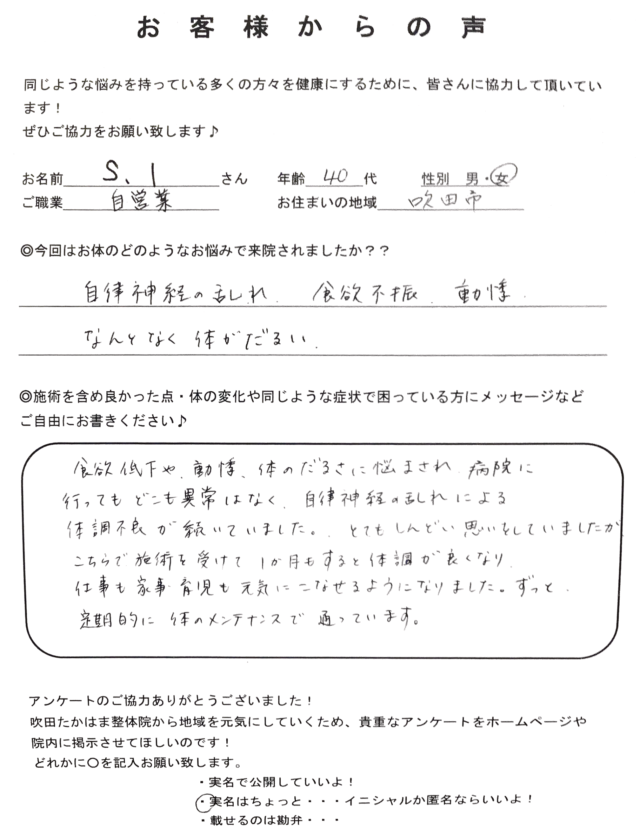 お客様からの声
同じような悩みを持っている多くの方々を健康にするために、皆さんに協力して頂いてい
ます！
ぜひご協力をお願い致します♪
お名前 S、I さん 年齢 40 代 性別 男・女
ご職業 自営業 お住まいの地域 吹田市
◎今回はお体のどのようなお悩みで来院されましたか？？
自律神経の乱れ、食欲不振、動悸、
なんとなく体がだるい、
◎施術を含め良かった点・体の変化や同じような症状で困っている方にメッセージなど
ご自由にお書きください♪
食欲低下や、動悸、体のだるさに悩まされ、病院に
行ってもどこも異常はなく、自律神経の乱れによる
体調不良が続いていました。、とてもしんどい思いをしていましたが
こちらで施術を受けて1か月もすると体調が良くなり、
仕事も家事・育児も元気にこなせるようになりました。ずっと、
定期的に体のメンテナンスで通っています。
アンケートのご協力ありがとうございました！
吹田たかはま整体院から地域を元気にしていくため、貴重なアンケートをホームページや
院内に掲示させてほしいのです！
どれかに〇を記入お願い致します。
・実名で公開していいよ！
・実名はちょっと・・・イニシャルか匿名ならいいよ！
・載せるのは勘弁・・・